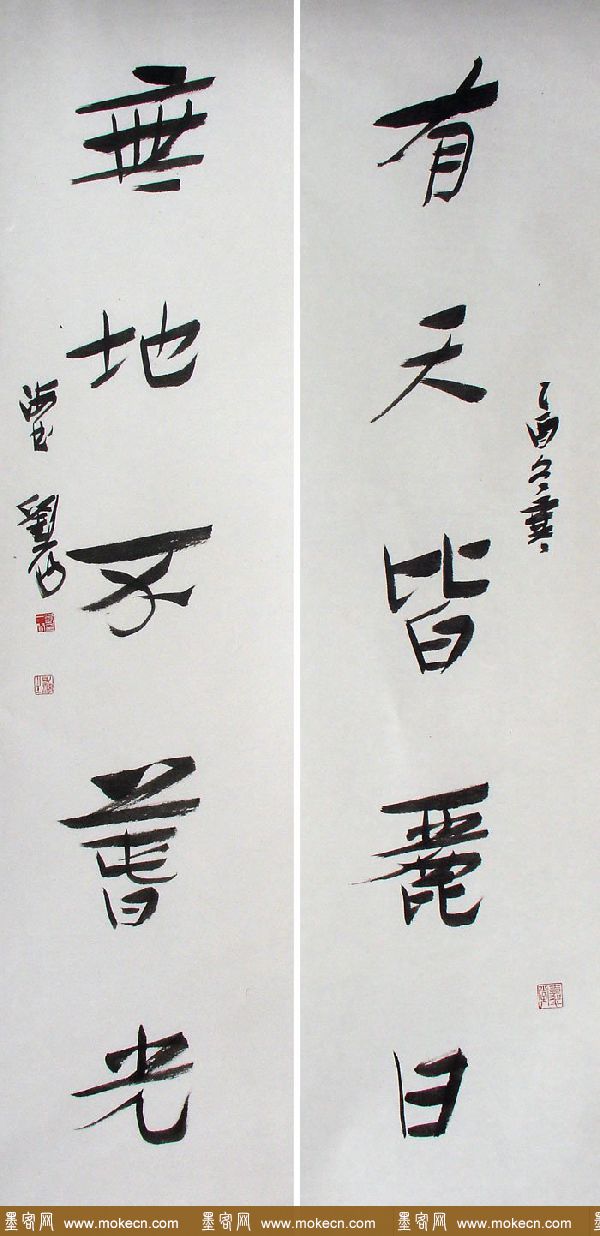 有天皆麗日
乙酉冬
無地不萅光
墨客网 www.mokecn.com 墨客网 www.mokecn.com 墨客网 www.mokecn.com